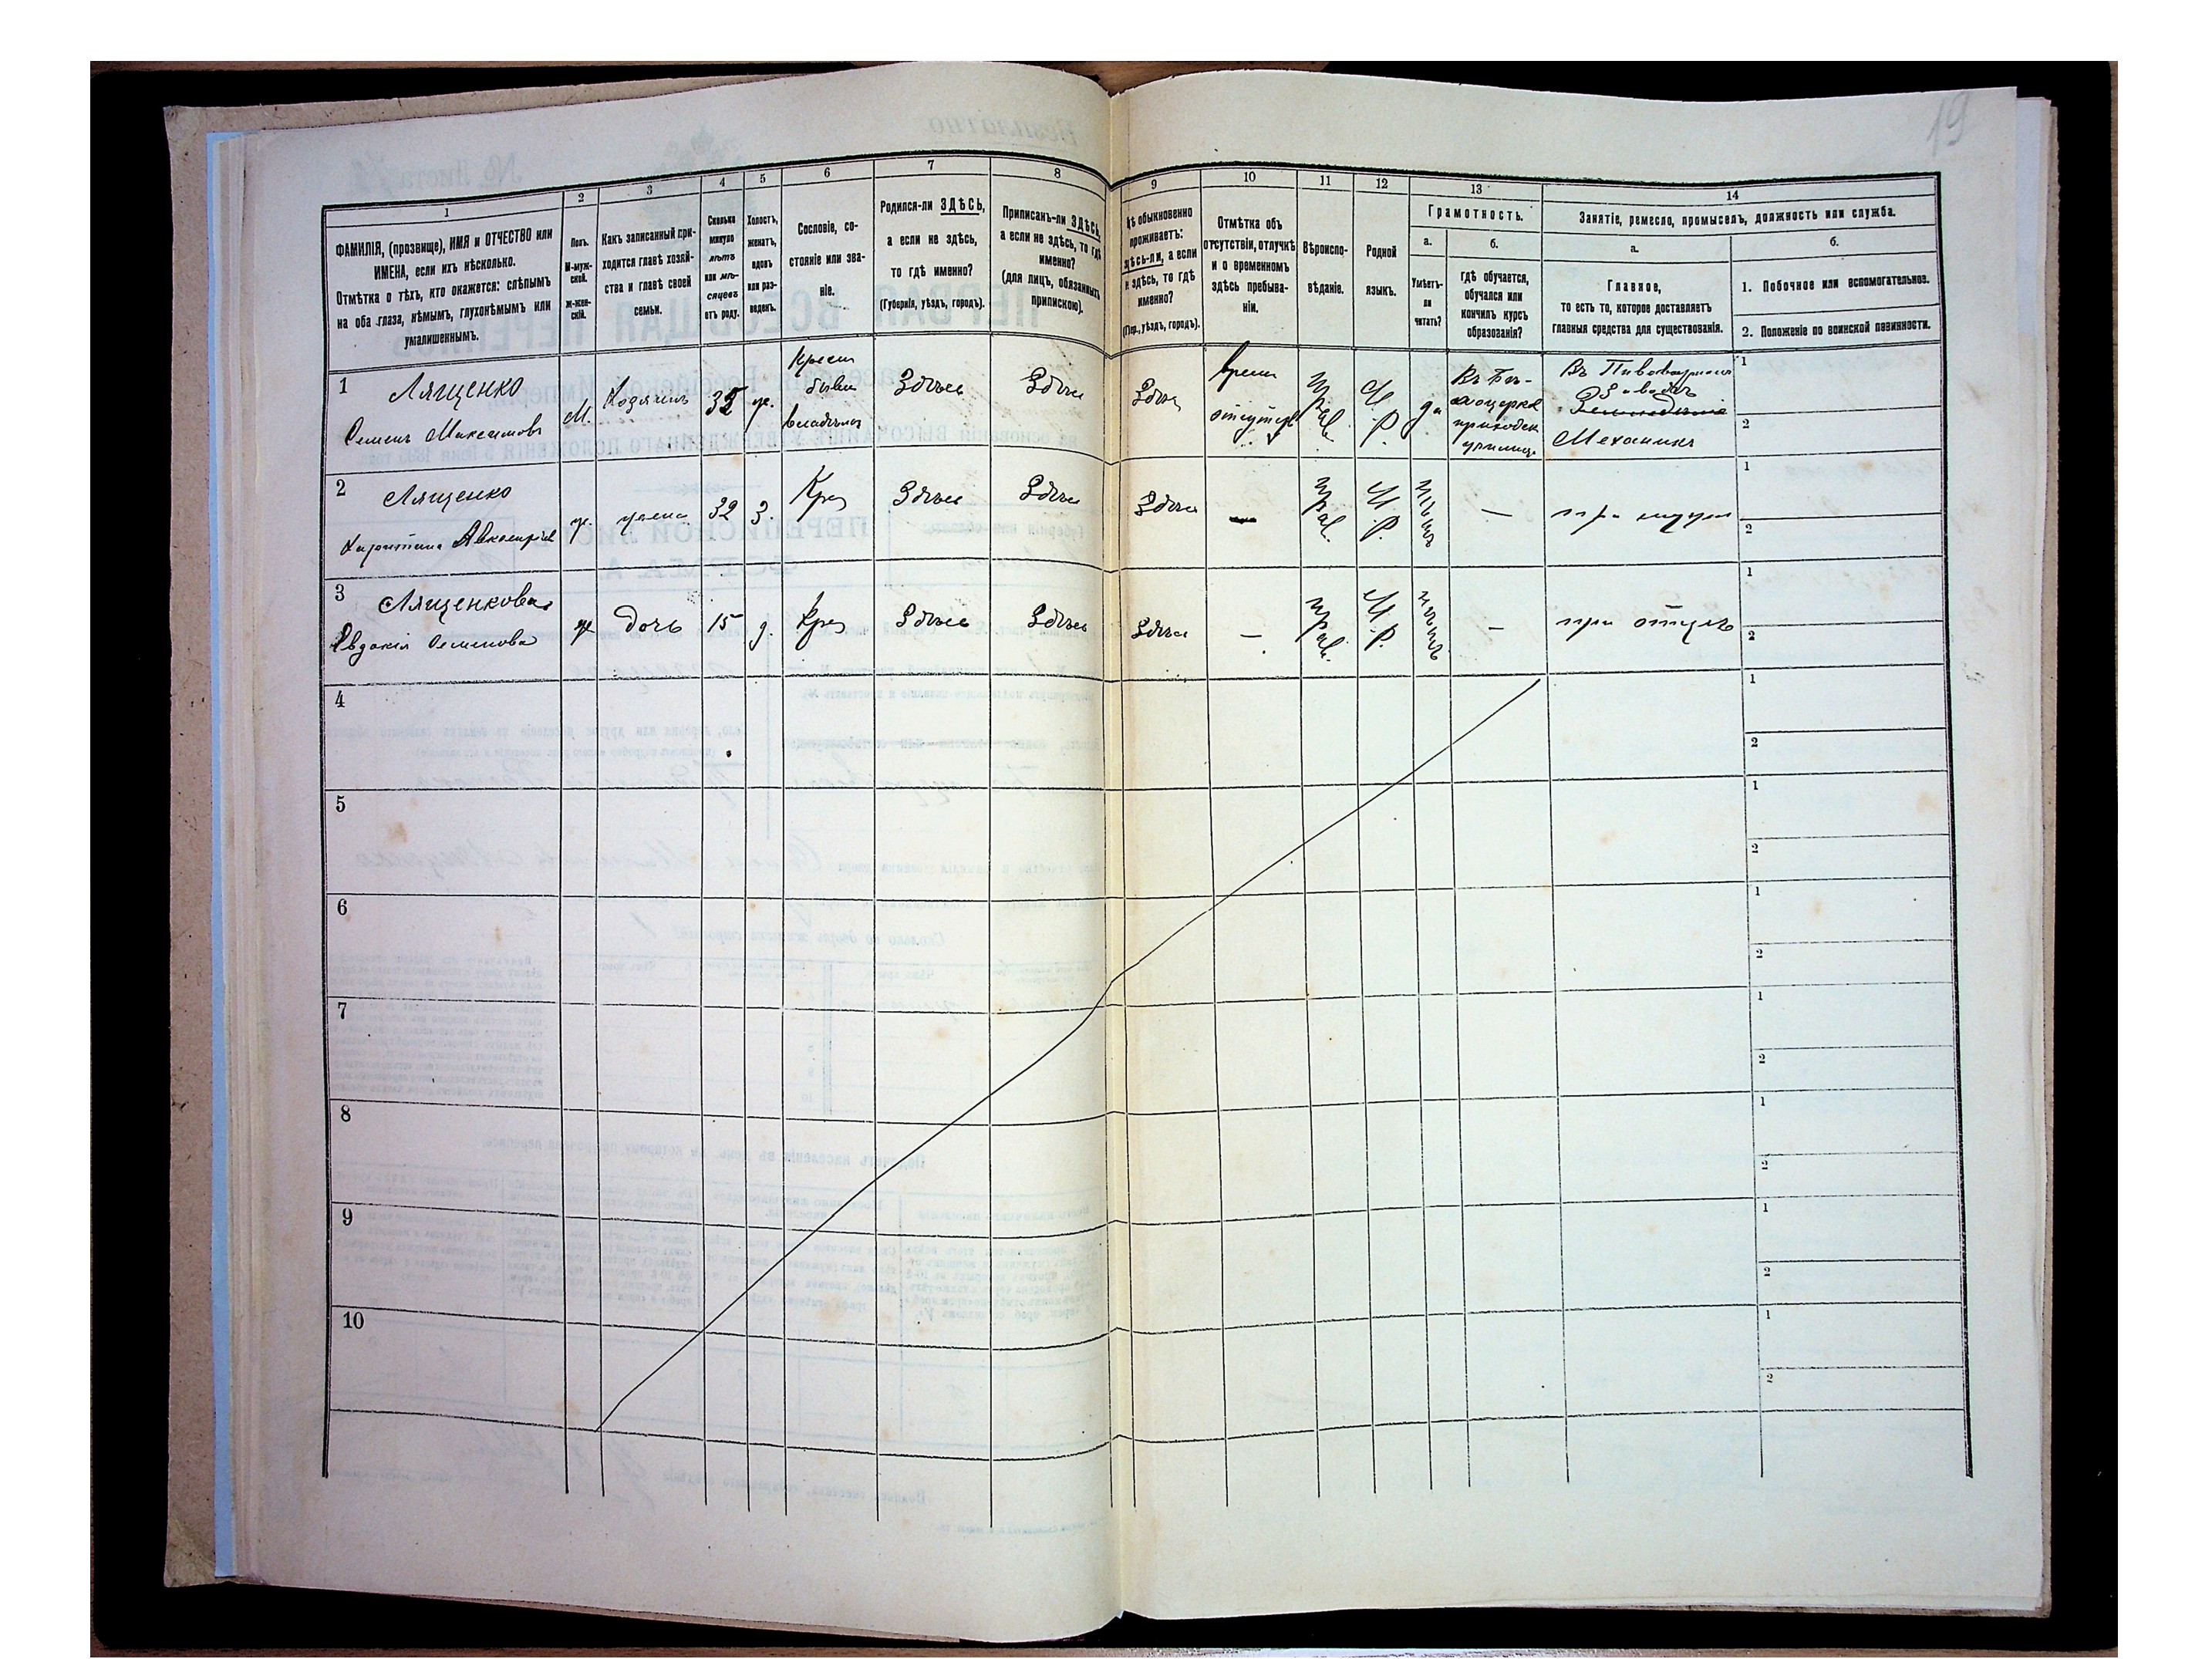 19
1 2 3 4 5 6 7 8 9 10 11 12 13 14
ФАМИЛІЯ, (прозвище), ИМЯ и ОТЧЕСТВО или
ИМЕНА, если ихъ нѣсколько.
Отмѣтка о тѣхъ, кто окажется: слѣпымъ
на оба глаза, нѣмымъ, глухонѣмымъ или
умалишеннымъ.
Полъ.
М-муж-
ской.
Ж-жен-
скій.
Какъ записанный при-
ходится главѣ хозяй-
ства и главѣ своей
семьи.
Сколько
минуло
лѣтъ
или мѣ-
сяцевъ
отъ роду.
Холостъ,
женатъ,
вдовъ
или раз-
веденъ.
Сословіе, со-
стояніе или зва-
ніе.
Родился-ли ЗДѢСЬ,
а если не здѣсь,
то гдѣ именно?
(Губернія, уѣздъ, городъ).
Приписанъ-ли ЗДѢСЬ,
а если не здѣсь, то гдѣ
именно?
(для лицъ, обязанныхъ
припискою).
обыкновенно
проживаетъ:
а если
здѣсь, то гдѣ
именно?
уѣздъ, городъ).
Отмѣтка объ
отсутствіи, отлучкѣ
и о временномъ
здѣсь пребыва-
ніи.
Вѣроиспо-
вѣданіе.
Родной
языкъ.
Грамотность.
а.
Умѣетъ-
ли
читать?
б.
гдѣ обучается,
обучался или
кончилъ курсъ
образованія?
Занятіе, ремесло, промыселъ, должность или служба.
а.
Главное,
то есть то, которое доставляетъ
главныя средства для существованія.
б.
1. Побочное или вспомогательное.
2. Положеніе по воинской повинности.
1 Лященко
Семенъ Максимовъ
М.
Хозяинъ
ж.
Крест
бывш
Здѣсь
Здѣсь
Здѣсь
времен
отсутств
Прав.
М.
Р.
да
приходск
училищ
Въ Пивоваренном
Заводѣ
Механикъ
1
2
2 Лященко
Харитина
ж.
жена
32
З.
Крес
Здѣсь
Здѣсь
Здѣсь
—
Прав.
М.
Р.
нѣтъ
—
при мужѣ
1
2
3 Лященкова
Евдокія Семенова
ж
дочь
15
д.
Крес
Здѣсь
Здѣсь
Здѣсь
—
Прав.
М.
Р.
нѣтъ
—
при отцѣ
1
2
4
1
2
5
1
2
6
1
2
7
1
2
8
1
2
9
1
2
10
1
2